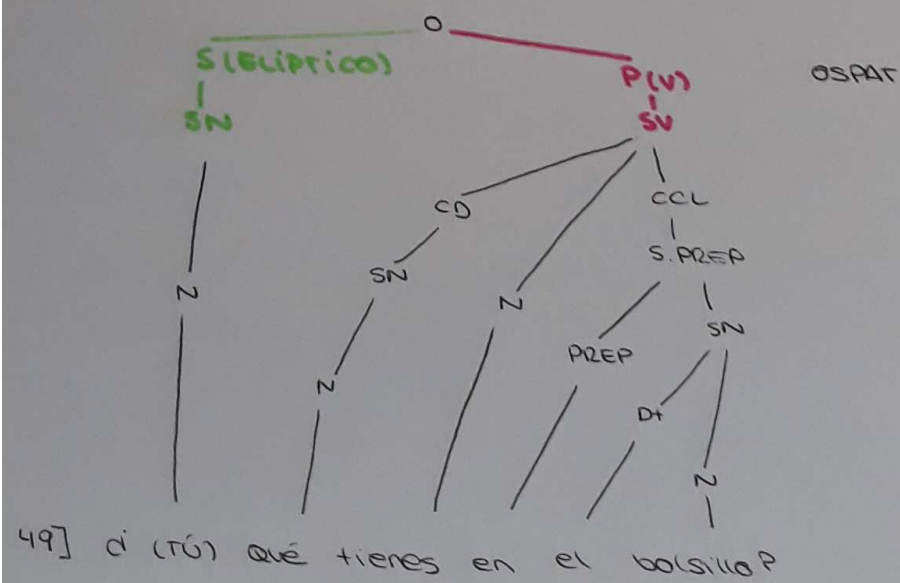 O
S (ELÍPTICO)
P(V)
OSPAT
SN
SV
CD
CCL
SN
S.PREP
N
N
PREP
SN
N
Dt
N
49] ¿ (TÚ) Qué tienes en el bolsillo?